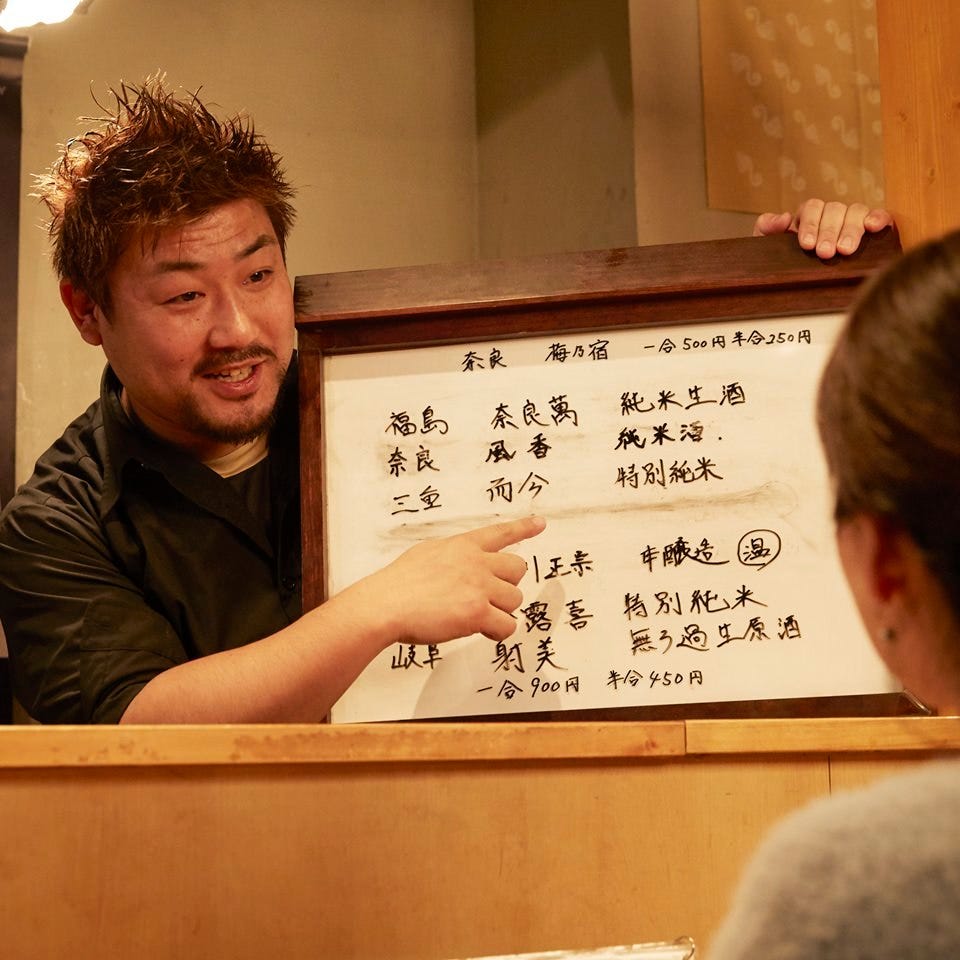 奈良 梅乃宿 一合500円 半合250円
福島 奈良萬 純米生酒
奈良 風香 純米酒.
三重 而今 特別純米
川正宗 本醸造 温
露喜 特別純米
岐阜 射美 無ろ過生原酒
一合900円 半合450円